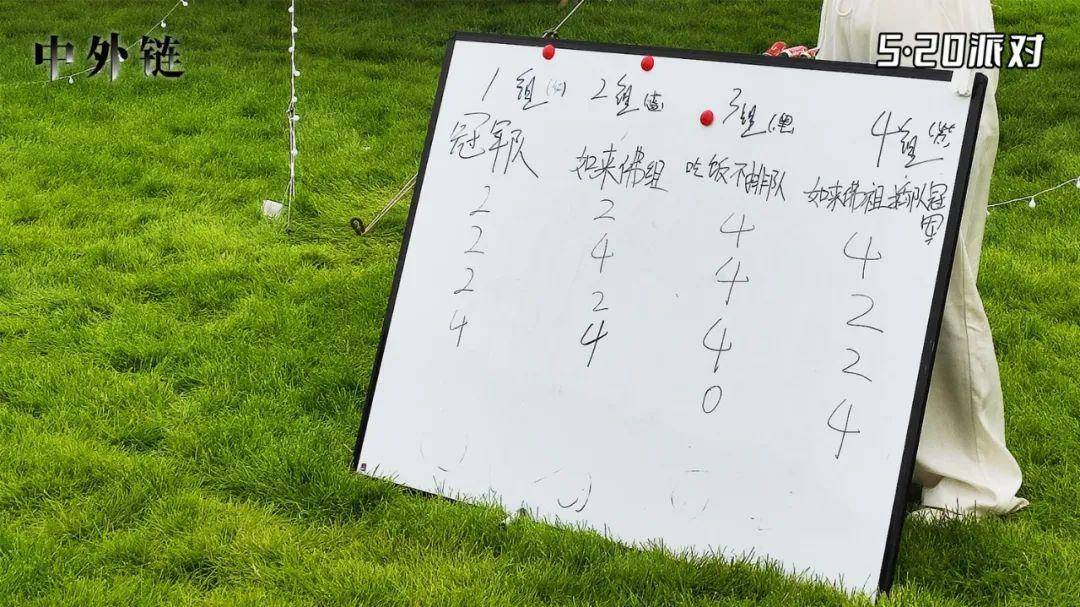 中外链
5·20派对
1组 2组 3组 4组
冠军队 如来佛组 吃饭不排队 如来佛祖 冠军
2 2 4 4
2 4 4 2
2 2 4 2
4 4 4 4
0